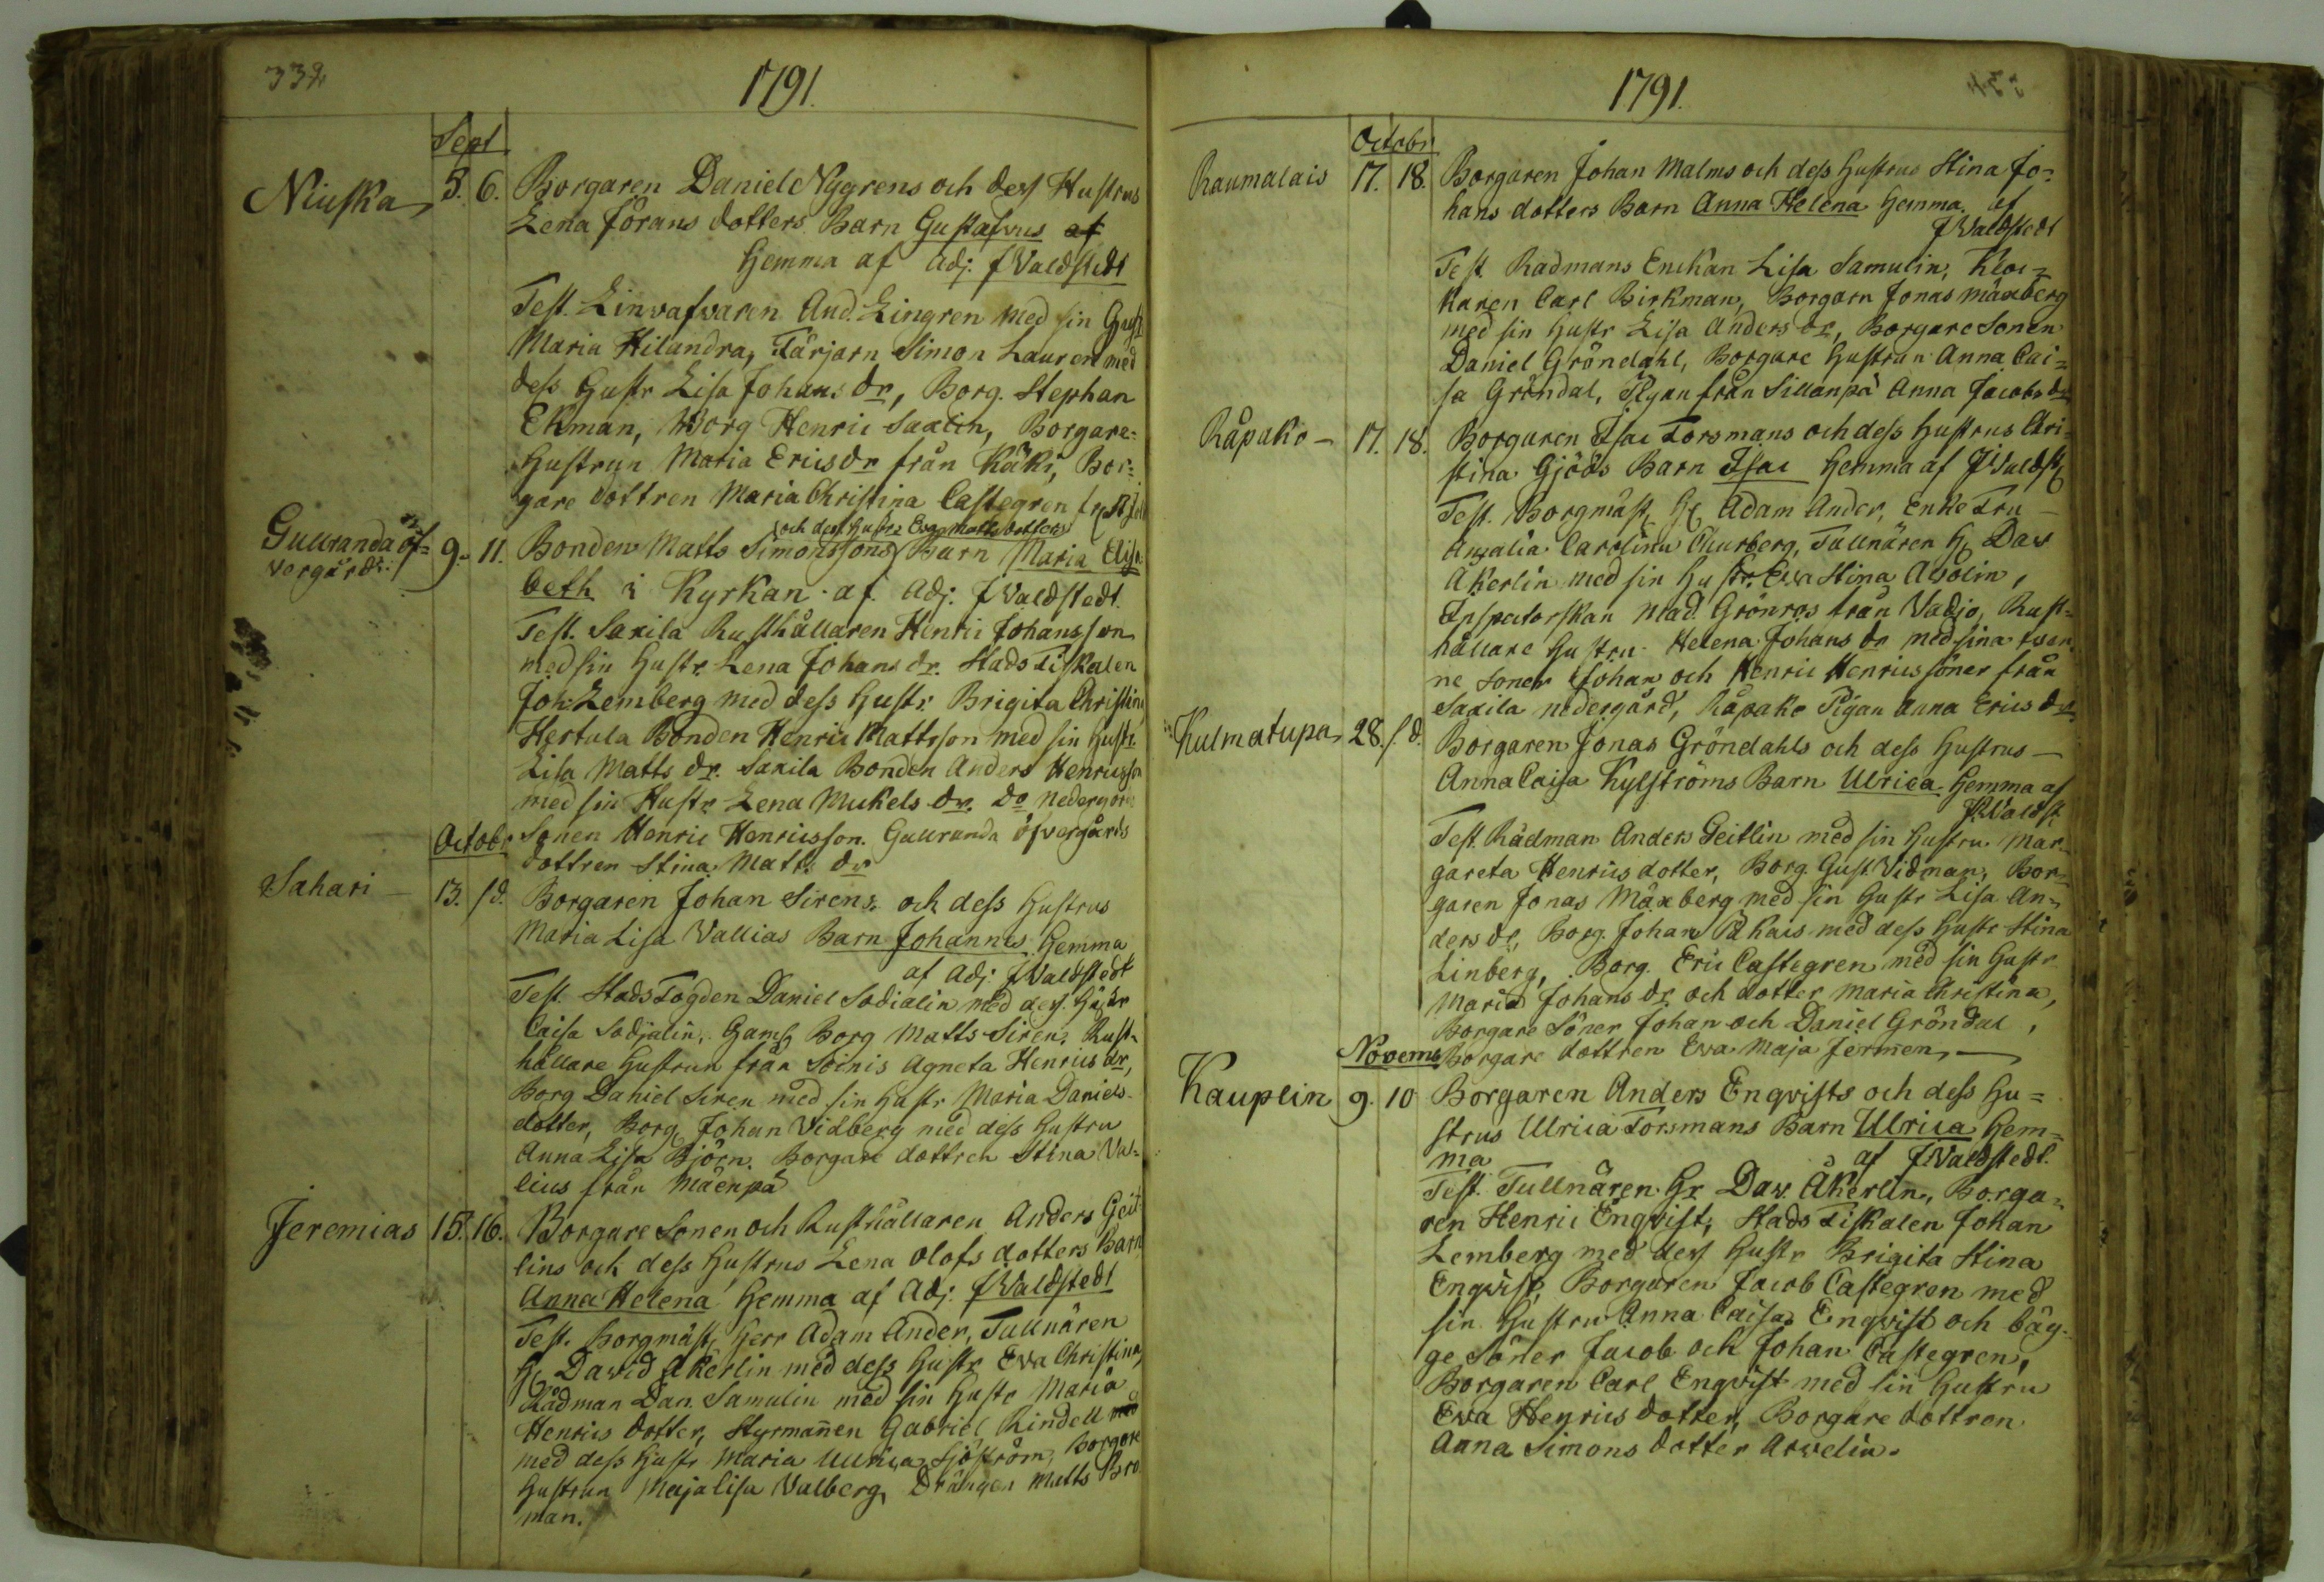 332
1791.
Sept
Niuska 5. 6. Borgaren Daniel Nygrens och dess Hustrus
Lena Jörans dotters Barn Gustafvus af
Hemma af Adj. J Waldstedt
Test. Linvafvaren And. Lingren med sin Hust
Maria Hilandra, Färjarn Simon Lauren med
dess Hustr Lisa Johans dr, Borg. Stephan
Ekman, Borg Henric Saxlin, Borgare-
Hustrun Maria Erics dr från Käki, Bor-
gare dottren Maria Christina Castegren
och dess hustrus Eva Matts dotters
Gullranda öf- 9. 11. Bonden Matts Simonssons Barn Maria Elisa
vergård.
beth i Kyrkan af Adj. J Waldstedt.
Test. Saxila Rusthållaren Henric Johansson
med sin Hustr. Lena Johans dr. Stads Fiskalen
Joh. Lemberg med dess Hustr. Brigita Christina
Hertula Bonden Henric Mattsson med sin Hustr.
Lisa Matts dr. Saxila Bonden Anders Henricsson
med sin Hustr. Lena Mickels dr. Do Nedergårds
Sonen Henric Henricsson. Gullranda öfvergårds
dottren Stina Matts dr
Octobr
Sahari — 13. /d. Borgaren Johan Sirens och dess Hustrus
Maria Lisa Vallias Barn Johannes Hemma
af Adj. J Waldstedt
Test. Stads Fogden Daniel Sodialin med dess Hustr
Caisa Sodjalin, Gaml Borg Matts Siren, Rust-
hållare Hustrun från Soinis Agneta Henrics dr,
Borg Daniel Siren med sin Hustr Maria Daniels-
dotter, Borg Johan Vidberg med dess Hustru
Anna Lisa Björn. Borgare dottren Stina Val-
lius från Mäenpä
Jeremias 15. 16. Borgare Sonen och Rusthållaren Anders Geit-
lins och dess Hustrus Lena Olofs dotters Barn
Anna Helena Hemma af Adj. J Waldstedt
Test. Borgmäst, Herr Adam Ander, Tullnären
H David Åkerlin med dess Hustr Eva Christina
Rådman Dan. Samulin med sin Hustr Maria
Henrics dotter, Styrmannen Gabriel Rindell med
med dess Hustr Maria Ulrica Sjöström, Borgare
Hustrun Maja Lisa Valberg, Drängen Matts Bro
man.
1791.
Octobr
Raumalais 17. 18. Borgaren Johan Malms och dess Hustrus Stina Jo-
hans dotters Barn Anna Helena Hemma af
J Waldstedt
Test. Radmans Enckan Lisa Samulin, Kloc-
karen Carl Birkman, Borgarn Jonas Mäxberg
med sin Hustr Lisa Anders dr, Borgare Sonen
Daniel Gröndahl, Borgare Hustrun Anna Cai-
sa Gröndal, Pigan från Sillanpä Anna Jacobs dr
Råpako — 17. 18. Borgaren Isac Forsmans och dess Hustrus Chri-
stina Gjöös Barn Isac Hemma af J Waldst
Test. Borgmäst, H Adam Ander, Enke Fru —
Amalia Carolina Churberg, Tullnären H Dav
Åkerlin med sin Hustr. Eva Stina Avolin,
Inspectorskan Mad. Grönros från Vadjo, Rust-
hållare Hustru Helena Johans dr med sina tven
ne Soner Johan och Henric Henrics söner från
Saxila nedergård, Råpako Pigan Anna Erics dr
Kulmatupa 28. /d. Borgaren Jonas Gröndahls och dess Hustrus —
Anna Caisa Kylströms Barn Ulrica Hemma af
J Waldst
Test. Rådman Anders Geitlin med sin Hustru Mar-
gareta Henrics dotter, Borg. Gust. Vidman, Bor-
garen Jonas Mäxberg med sin Hustr Lisa An-
ders dr, Borg. Johan Påkais med dess Hustr Stina
Linberg, Borg. Eric Castegren med sin Hustr
Maria Johans dr och dotter Maria Christina,
Borgare Söner Johan och Daniel Gröndal,
Borgare dottren Eva Maja Jermen, —
Novemb
Kauplin 9. 10 Borgaren Anders Enqvists och dess Hu-
strus Ulrica Forsmans Barn Ulrica Hem-
ma af J Waldstedt.
Test. Tullnären Hr Dav. Åkerlin, Borga-
ren Henric Enqvist, Stads Fiskalen Johan
Lemberg med dess Hustr Brigita Stina
Enqvist, Borgaren Jacob Castegren med
sin Hustru Anna Caisa Enqvist och båg-
ge Söner Jacob och Johan Castegren,
Borgaren Carl Enqvist med sin Hustru
Eva Henrics dotter, Borgare dottren
Anna Simons dotter Arvelin.